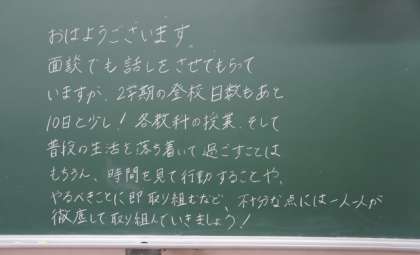 おはようございます。
面談でも話しをさせてもらって
いますが、2学期の登校日数もあと
10日と少し!各教科の授業、そして
普段の生活を落ち着いて過ごすことは
もちろん、時間を見て行動することや、
やるべきことに即取り組むなど、不十分な点には一人一人が
徹底して取り組んでいきましょう!